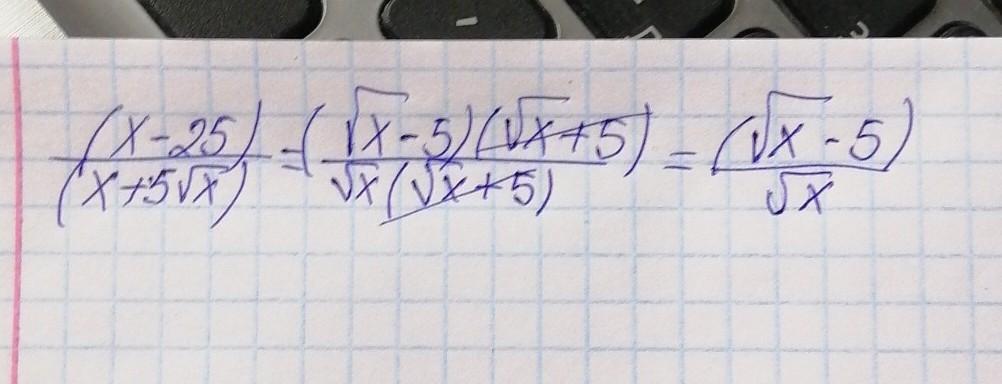 (x-25)/(x+5√x) = (√x-5)(√x+5)/√x(√x+5) = (√x-5)/√x